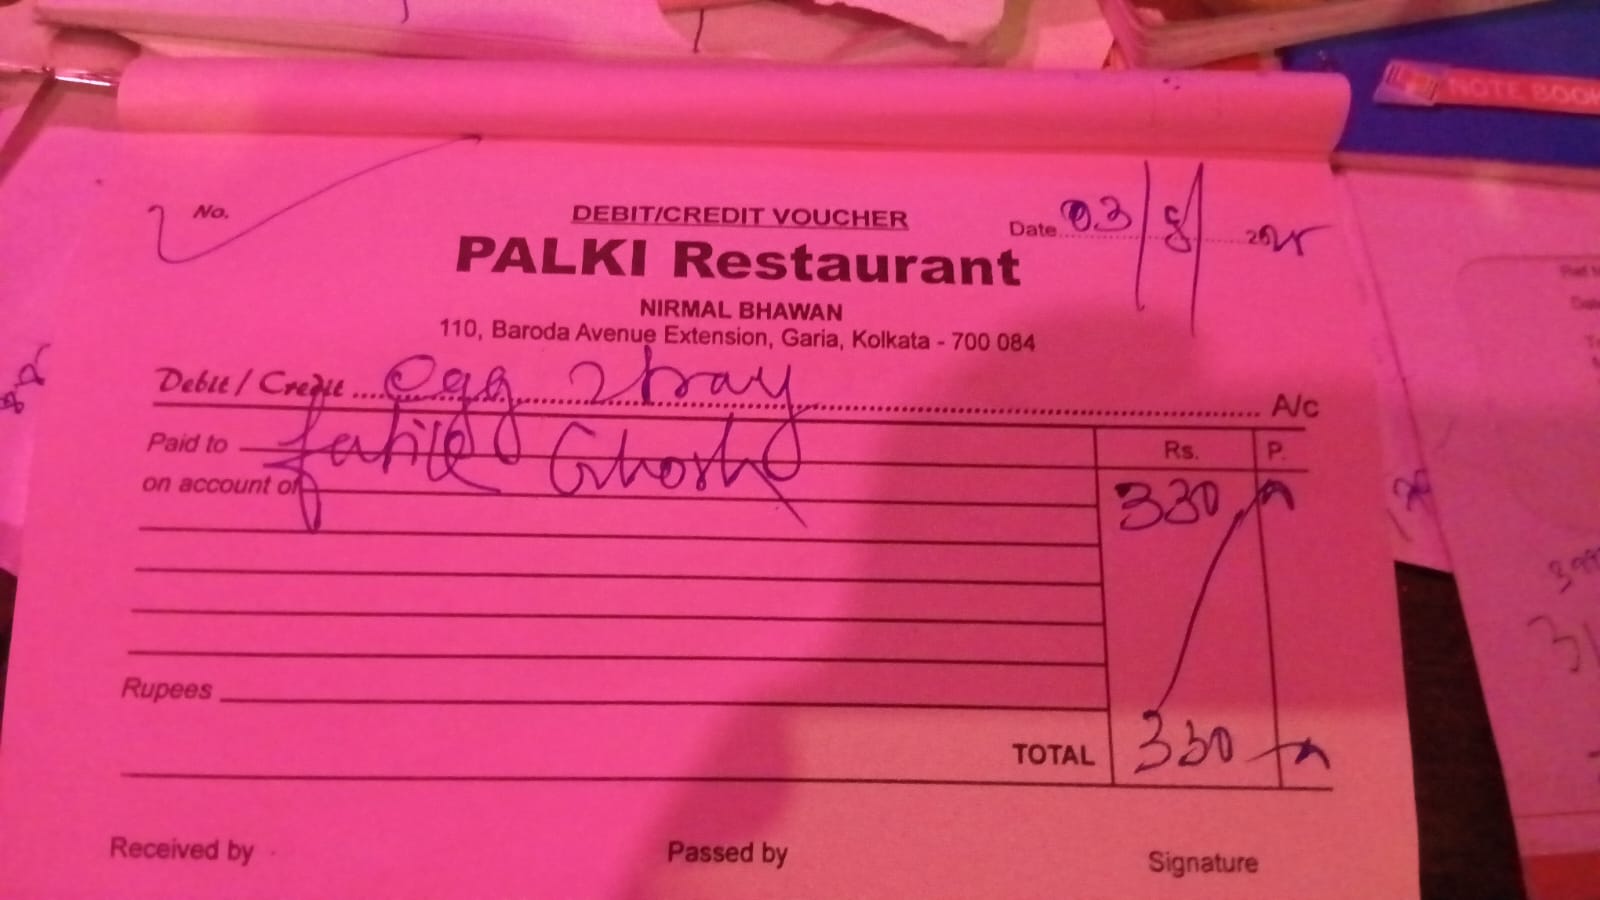 NOTE BOOK
No.
DEBIT/CREDIT VOUCHER
Date 03/8/2025
PALKI Restaurant
NIRMAL BHAWAN
110, Baroda Avenue Extension, Garia, Kolkata - 700 084
Debit / Credit egg 2 tray A/c
Paid to Ghosh
Rs. P.
on account of
330
Rupees
TOTAL 330
Received by Passed by Signature